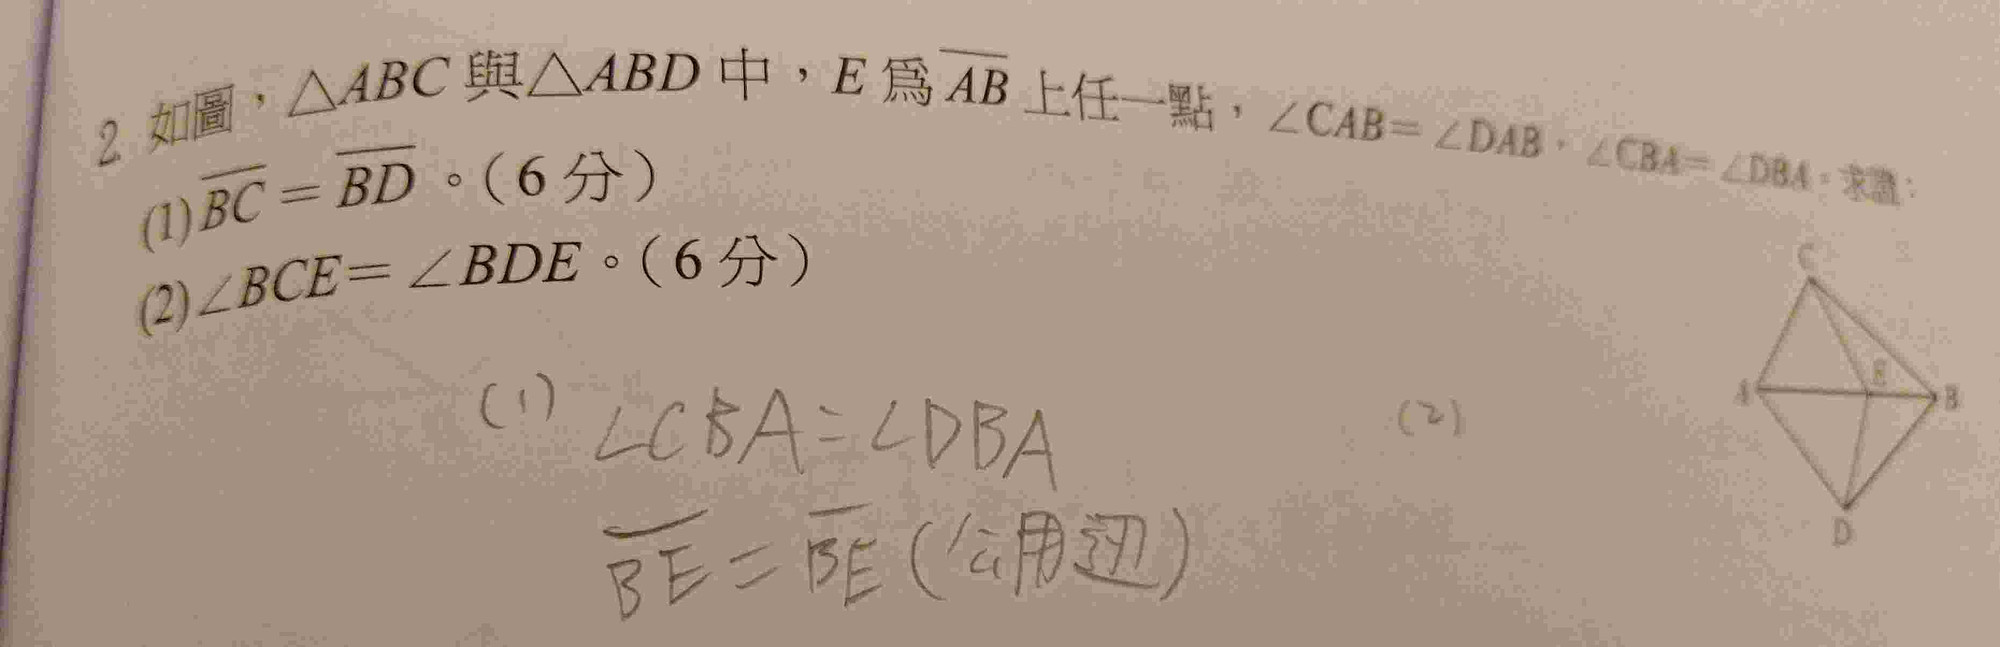 2 如圖，△ABC 與△ABD 中，E 爲 AB 上任一點，∠CAB=∠DAB，∠CBA=∠DBA。求證：
(1) BC = BD。（6 分）
(2) ∠BCE=∠BDE。（6 分）
C
A
E
B
D
(1) ∠CBA=∠DBA
(2)
BE = BE (公用边)